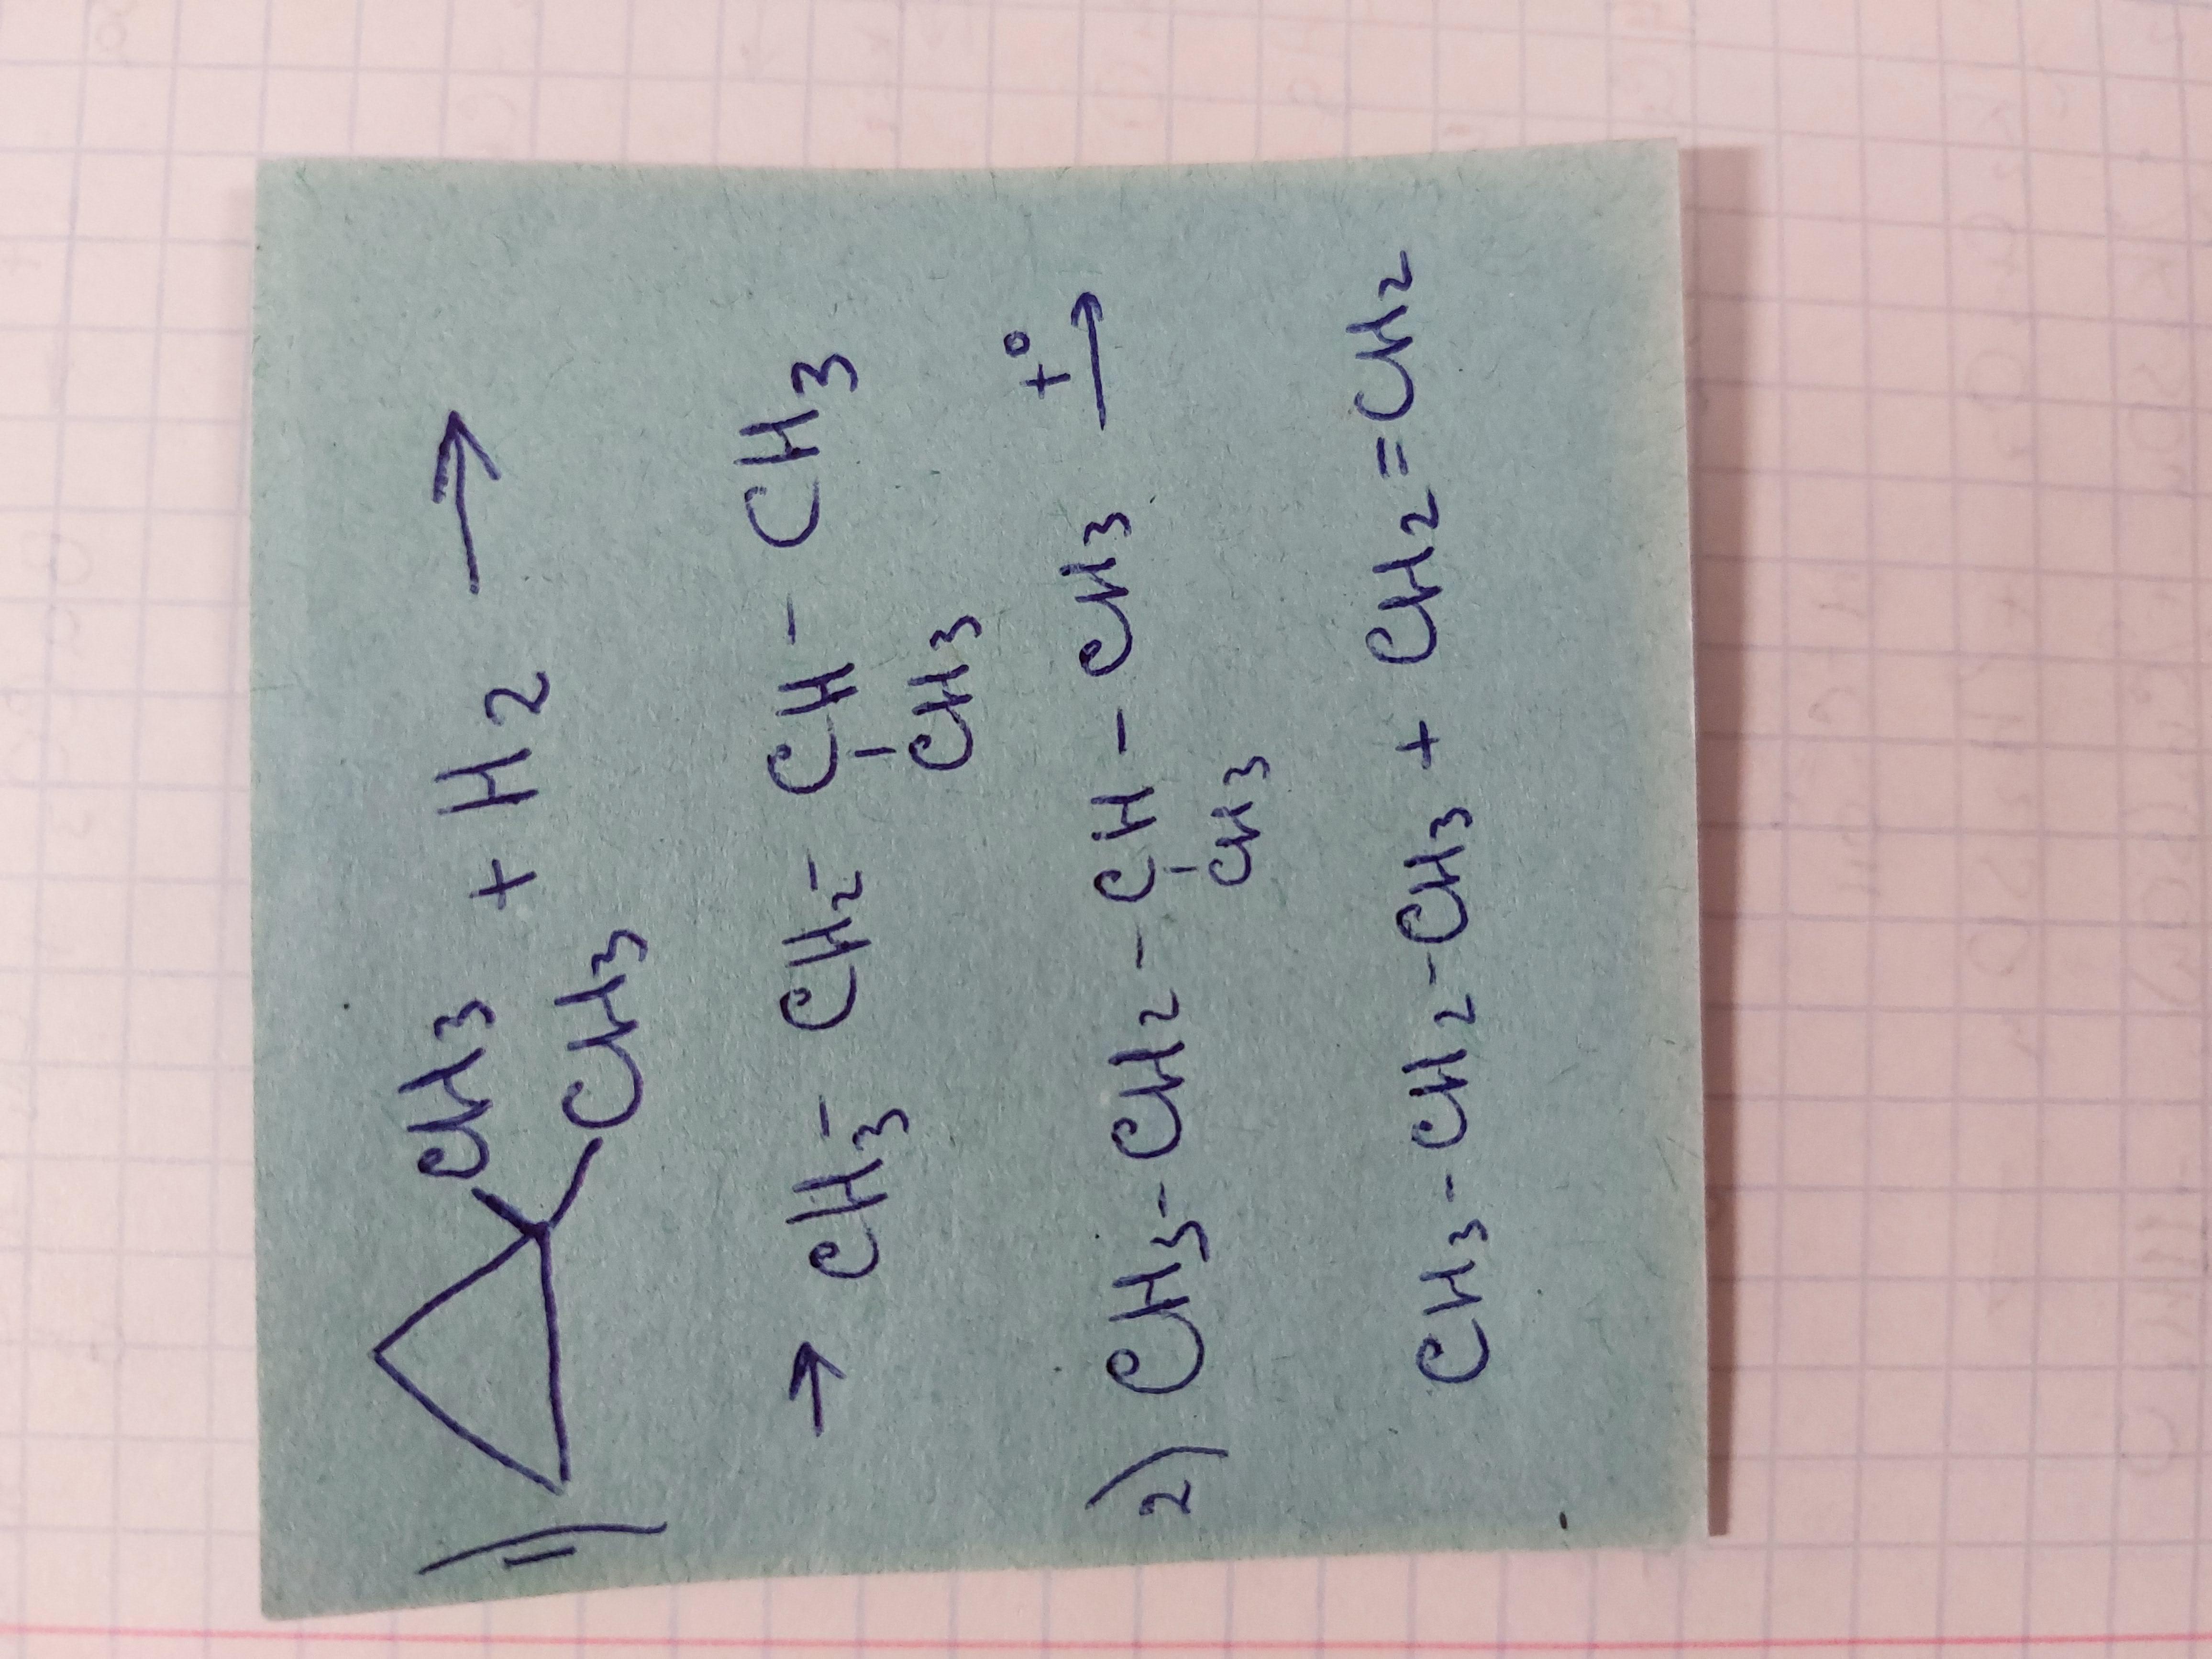 1) CH3 + H2 →
CH3
→ CH3 - CH2 - CH - CH3
CH3
2) CH3 - CH2 - CH - CH3 t° →
CH3
CH3 - CH2 - CH3 + CH2 = CH2